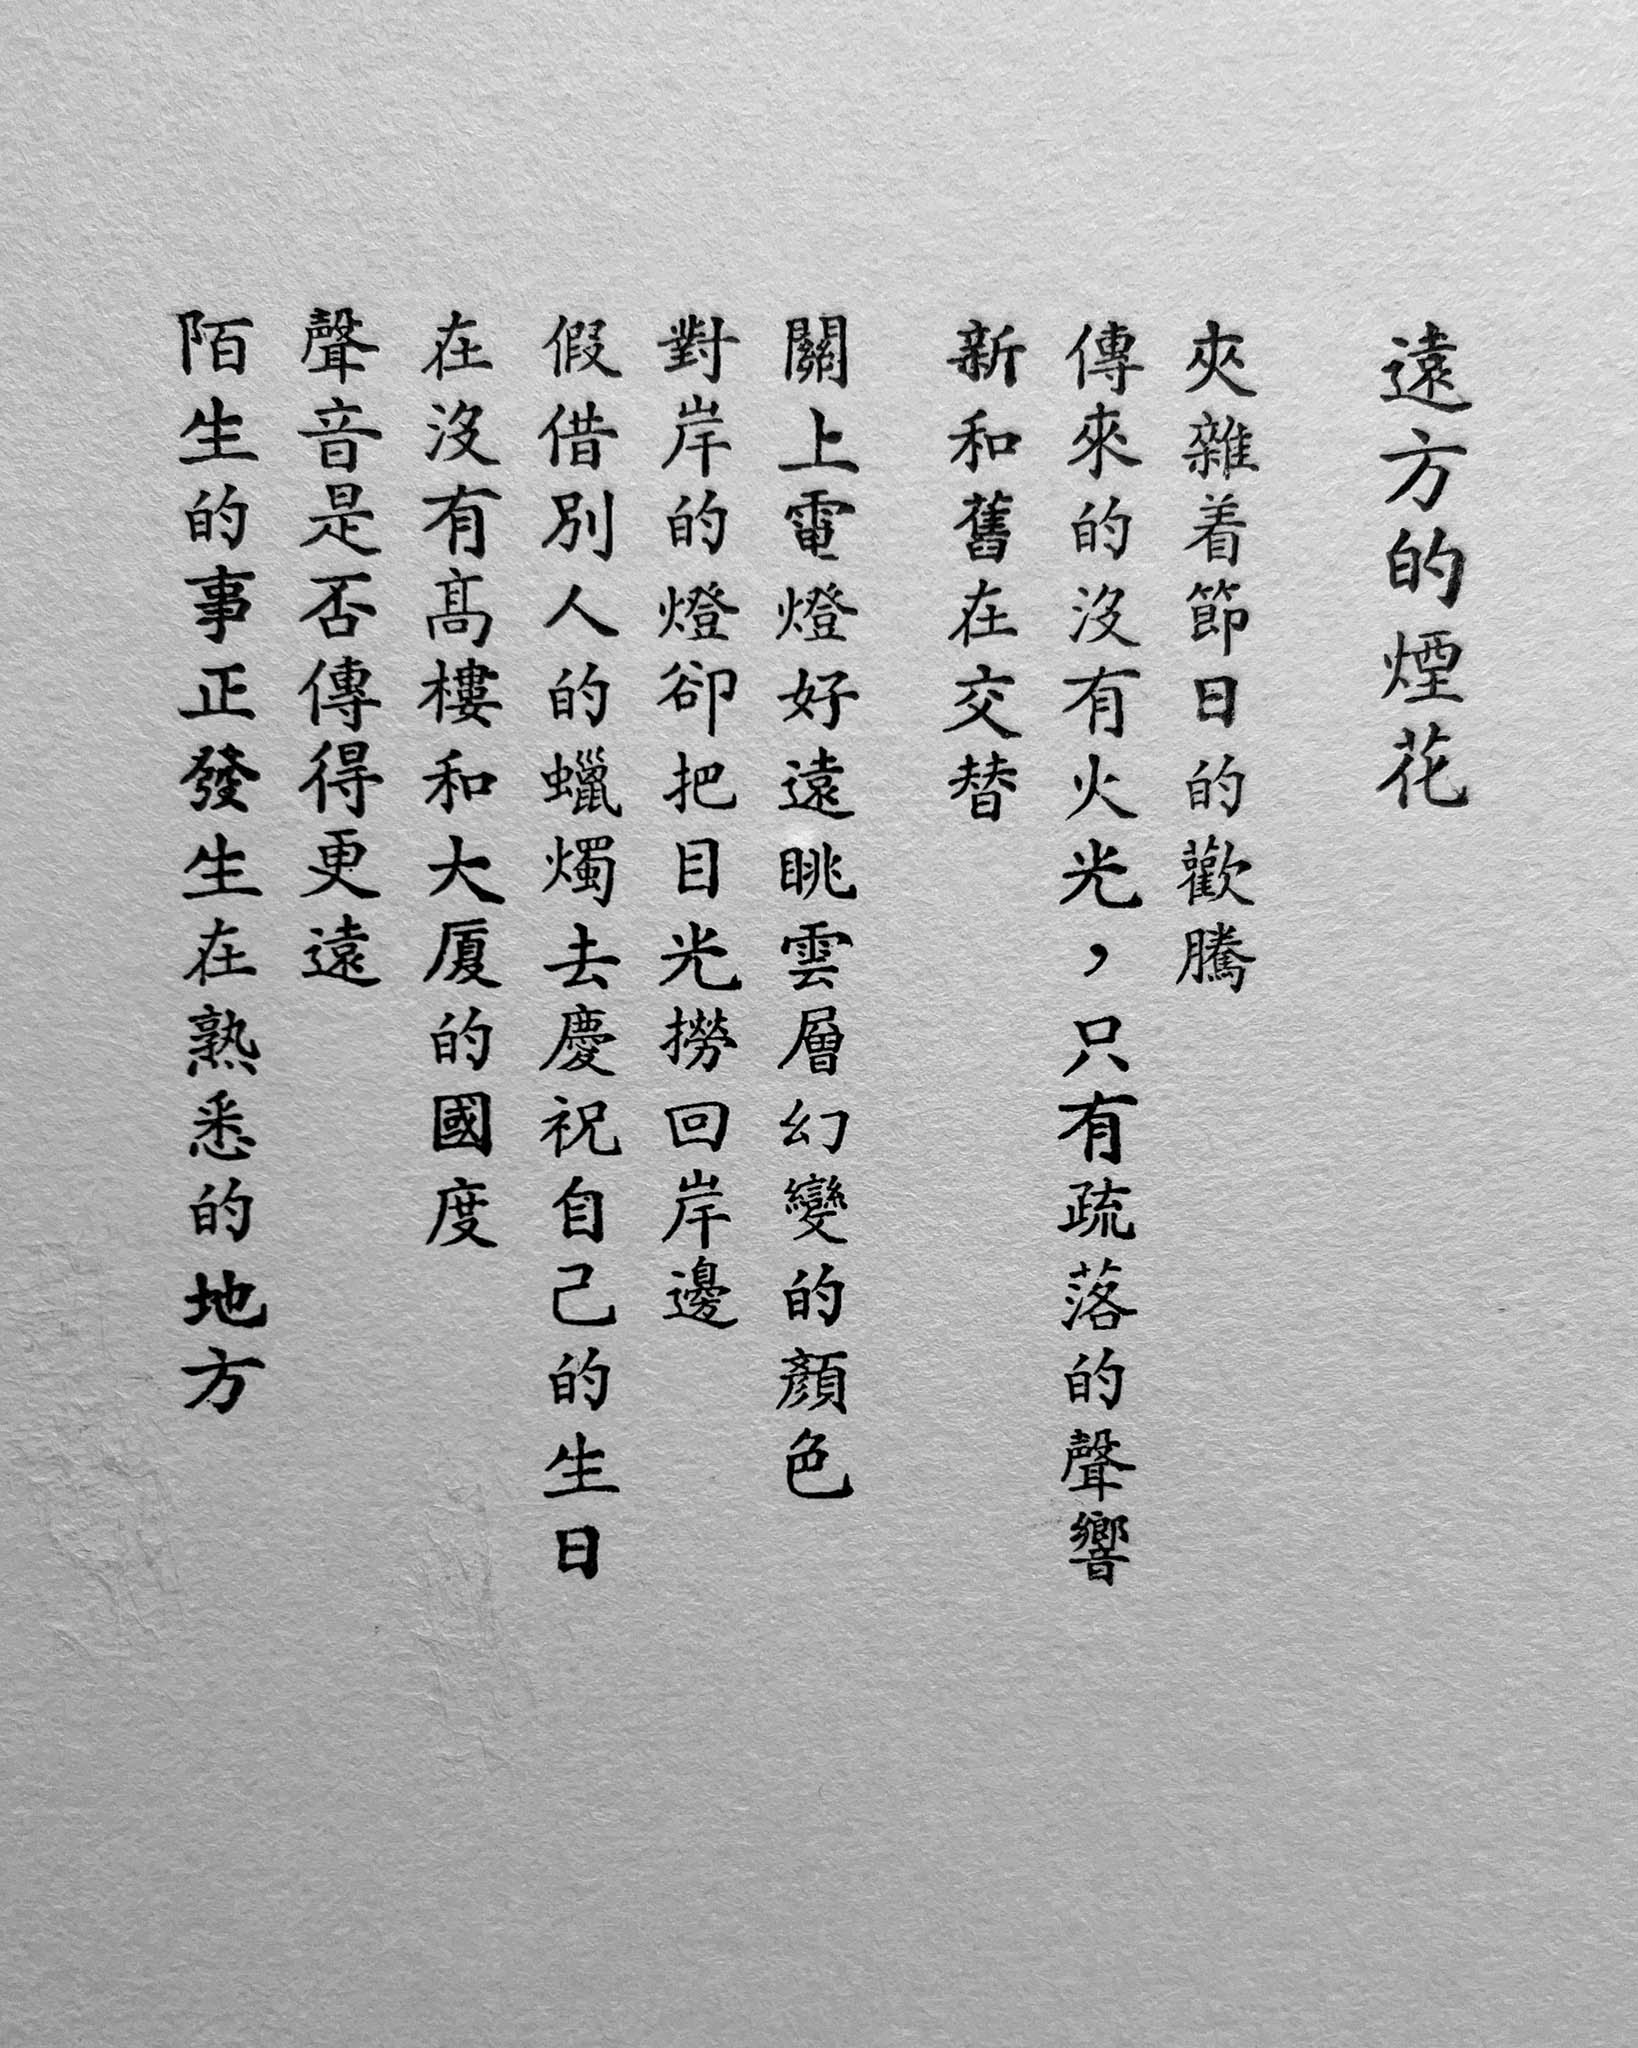 遠方的煙花
夾雜着節日的歡騰
傳來的沒有火光，只有疏落的聲響
新和舊在交替
關上電燈好遠眺雲層幻變的顏色
對岸的燈卻把目光撈回岸邊
假借別人的蠟燭去慶祝自己的生日
在沒有高樓和大厦的國度
聲音是否傳得更遠
陌生的事正發生在熟悉的地方